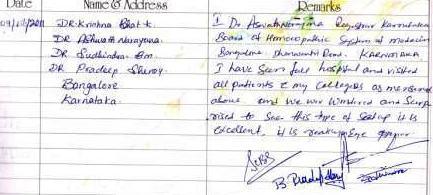 Date Name & Address Remarks
09/12/2011 DR. Krishna Bhat K. I Dr Aswathnarayana Registrar Karnataka
DR Ashwath Narayana. Board of Homoeopathic System of medicine
DR Sudhindra Bangalore Dhanvantri Road. KARNATAKA
DR Pradeep Shenoy. I have Seen four hospital and visited
Bangalore all patients & my Collegues as mentioned
Karnataka. above and we wer Wondered and Surp
rised to See this type of Setup it is
Excellent, it is
B. Pradeep